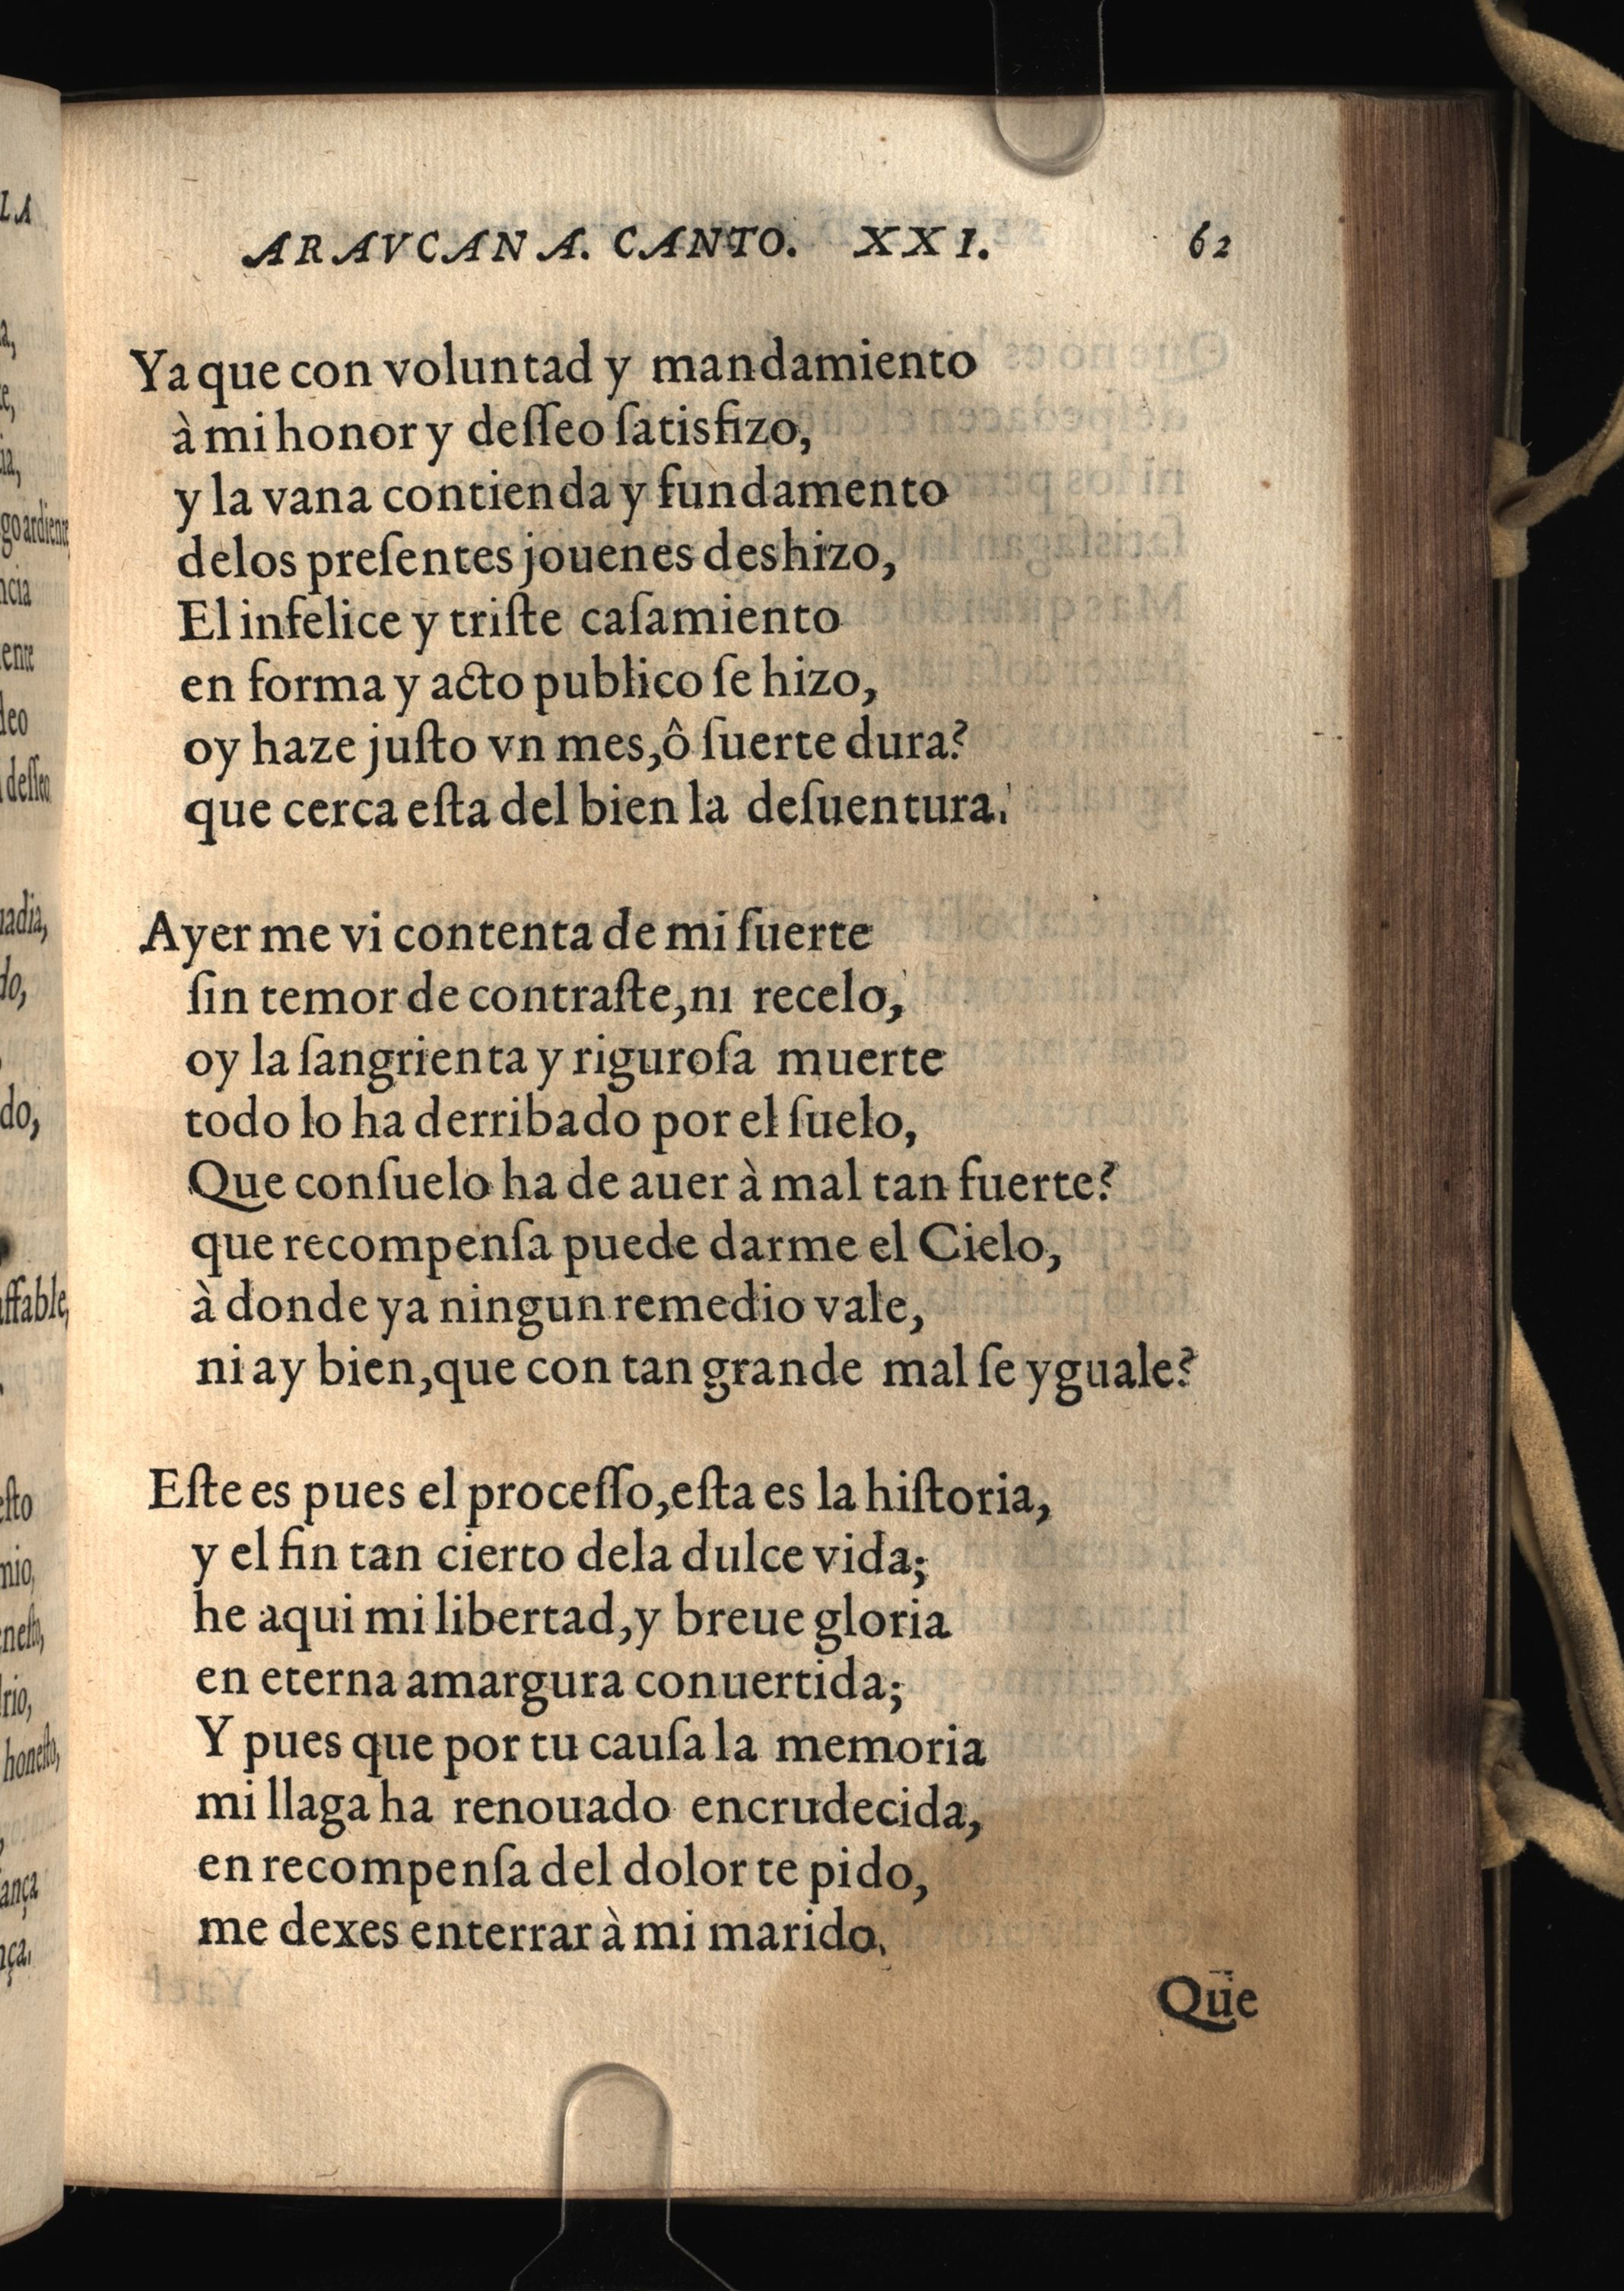 ARAVCANA. CANTO. XXI. 62
Ya que con voluntad y mandamiento
à mi honor y deſſeo ſatisfizo,
y la vana contienda y fundamento
delos preſentes jouenes deshizo,
El infelice y triſte caſamiento
en forma y acto publico ſe hizo,
oy haze juſto vn mes,ô ſuerte dura?
que cerca eſta del bien la deſuentura.
Ayer me vi contenta de mi ſuerte
ſin temor de contraſte,ni recelo,
oy la ſangrienta y riguroſa muerte
todo lo ha derribado por el ſuelo,
Que conſuelo ha de auer à mal tan fuerte?
que recompenſa puede darme el Cielo,
à donde ya ningun remedio vale,
ni ay bien,que con tan grande mal ſe yguale?
Eſte es pues el proceſſo,eſta es la hiſtoria,
y el fin tan cierto dela dulce vida;
he aqui mi libertad,y breue gloria
en eterna amargura conuertida;
Y pues que por tu cauſa la memoria
mi llaga ha renouado encrudecida,
en recompenſa del dolor te pido,
me dexes enterrar à mi marido.
Que